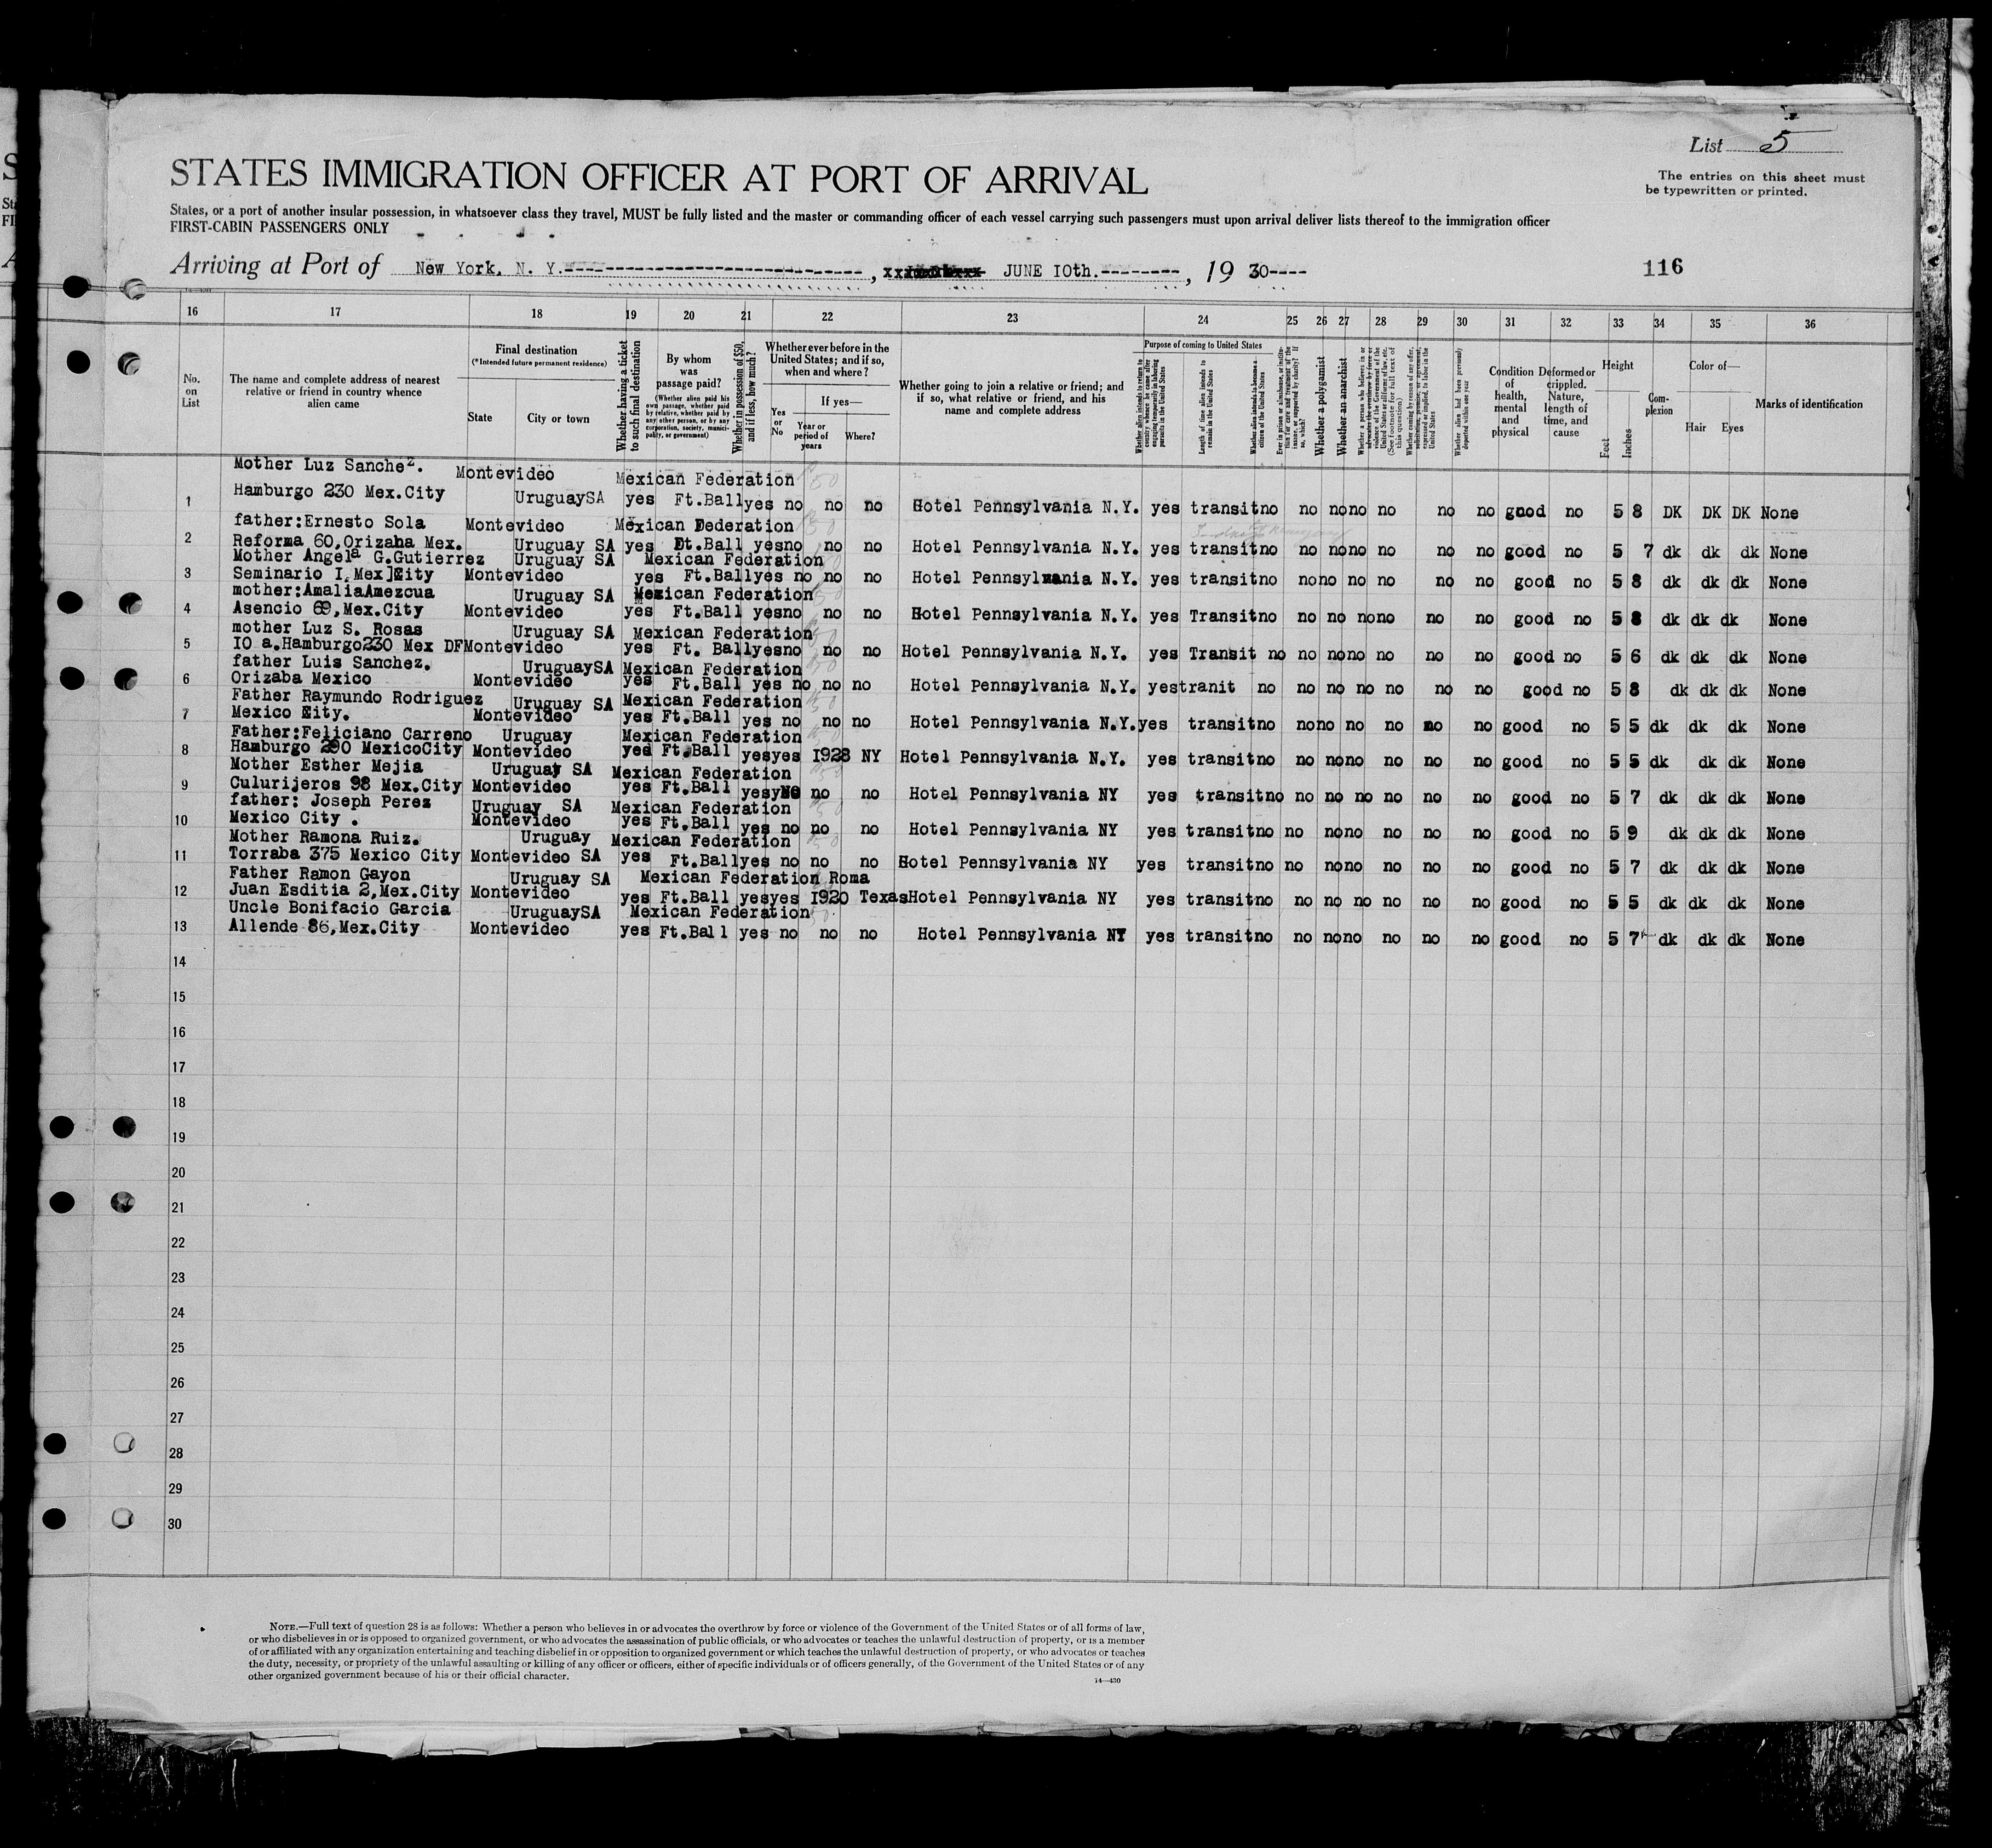 List 5
STATES IMMIGRATION OFFICER AT PORT OF ARRIVAL
The entries on this sheet must
be typewritten or printed.
States, or a port of another insular possession, in whatsoever class they travel, MUST be fully listed and the master or commanding officer of each vessel carrying such passengers must upon arrival deliver lists thereof to the immigration officer
FIRST-CABIN PASSENGERS ONLY
Arriving at Port of New York, N. Y. , JUNE I0th. , 19 30
116
16 17 18 19 20 21 22 23 24 25 26 27 28 29 30 31 32 33 34 35 36
No. on List
The name and complete address of nearest relative or friend in country whence alien came
Final destination
(*Intended future permanent residence)
State
City or town
Whether having a ticket to such final destination
By whom was passage paid?
(Whether alien paid his own passage, whether paid by relative, whether paid by any other person, or by any corporation, society, municipality, or government)
Whether in possession of $50, and if less, how much?
Whether ever before in the United States; and if so, when and where?
Yes or No
If yes—
Year or period of years
Where?
Whether going to join a relative or friend; and if so, what relative or friend, and his name and complete address
Purpose of coming to United States
Whether alien intends to return to country whence he came after engaging temporarily in laboring pursuits in the United States
Length of time alien intends to remain in the United States
Whether alien intends to become a citizen of the United States
Ever in prison or almshouse, or institution for care and treatment of the insane, or supported by charity? If so, which?
Whether a polygamist
Whether an anarchist
Whether a person who believes in or advocates the overthrow by force or violence of the Government of the United States or all forms of law, etc. (See footnote for full text of this question)
Whether coming by reason of any offer, solicitation, promise, or agreement, expressed or implied, to labor in the United States
Whether alien had been previously deported within one year
Condition of health, mental and physical
Deformed or crippled. Nature, length of time, and cause
Height
Feet
Inches
Complexion
Color of—
Hair Eyes
Marks of identification
Mother Luz Sanchez. Montevideo Mexican Federation
1 Hamburgo 230 Mex.City UruguaySA yes Ft.Ball yes no no no Hotel Pennsylvania N.Y. yes transit no no no no no no no good no 5 8 DK DK DK None
father:Ernesto Sola Montevideo Mexican Federation
2 Reforma 60,Orizaba Mex. Uruguay SA yes Ft.Ball yes no no no Hotel Pennsylvania N.Y. yes transit no no no no no no no good no 5 7 dk dk dk None
Mother Angela G.Gutierrez Uruguay SA Mexican Federation
3 Seminario I,Mex City Montevideo yes Ft.Ball yes no no no Hotel Pennsylvania N.Y. yes transit no no no no no no no good no 5 8 dk dk dk None
mother:AmaliaAmezcua Uruguay SA Mexican Federation
4 Asencio 69,Mex.City Montevideo yes Ft.Ball yes no no no Hotel Pennsylvania N.Y. yes Transit no no no no no no no good no 5 8 dk dk dk None
mother Luz S. Rosas Uruguay SA Mexican Federation
5 IO a.Hamburgo230 Mex DF Montevideo yes Ft. Ball yes no no no Hotel Pennsylvania N.Y. yes Transit no no no no no no no good no 5 6 dk dk dk None
father Luis Sanchez. UruguaySA Mexican Federation
6 Orizaba Mexico Montevideo yes Ft.Ball yes no no no Hotel Pennsylvania N.Y. yes tranit no no no no no no no good no 5 8 dk dk dk None
Father Raymundo Rodriguez Uruguay SA Mexican Federation
7 Mexico City. Montevideo yes Ft.Ball yes no no no Hotel Pennsylvania N.Y. yes transit no no no no no no no good no 5 5 dk dk dk None
Father:Feliciano Carreno Uruguay Mexican Federation
8 Hamburgo 290 MexicoCity Montevideo yes Ft.Ball yes yes I928 NY Hotel Pennsylvania N.Y. yes transit no no no no no no no good no 5 5 dk dk dk None
Mother Esther Mejia Uruguay SA Mexican Federation
9 Culurijeros 98 Mex.City Montevideo yes Ft.Ball yes no no Hotel Pennsylvania NY yes transit no no no no no no no good no 5 7 dk dk dk None
father: Joseph Perez Uruguay SA Mexican Federation
10 Mexico City . Montevideo yes Ft.Ball yes no no no Hotel Pennsylvania NY yes transit no no no no no no no good no 5 9 dk dk dk None
Mother Ramona Ruiz. Uruguay Mexican Federation
11 Torraba 375 Mexico City Montevideo SA yes Ft.Ball yes no no no Hotel Pennsylvania NY yes transit no no no no no no no good no 5 7 dk dk dk None
Father Ramon Gayon Uruguay SA Mexican Federation Roma
12 Juan Esditia 2,Mex.City Montevideo yes Ft.Ball yes yes I920 Texas Hotel Pennsylvania NY yes transit no no no no no no no good no 5 5 dk dk dk None
Uncle Bonifacio Garcia UruguaySA Mexican Federation
13 Allende 86,Mex.City Montevideo yes Ft.Ball yes no no no Hotel Pennsylvania NY yes transit no no no no no no no good no 5 7 dk dk dk None
14
15
16
17
18
19
20
21
22
23
24
25
26
27
28
29
30
NOTE.—Full text of question 28 is as follows: Whether a person who believes in or advocates the overthrow by force or violence of the Government of the United States or of all forms of law,
or who disbelieves in or is opposed to organized government, or who advocates the assassination of public officials, or who advocates or teaches the unlawful destruction of property, or is a member
of or affiliated with any organization entertaining and teaching disbelief in or opposition to organized government or which teaches the unlawful destruction of property, or who advocates or teaches
the duty, necessity, or propriety of the unlawful assaulting or killing of any officer or officers, either of specific individuals or of officers generally, of the Government of the United States or of any
other organized government because of his or their official character.
14—430